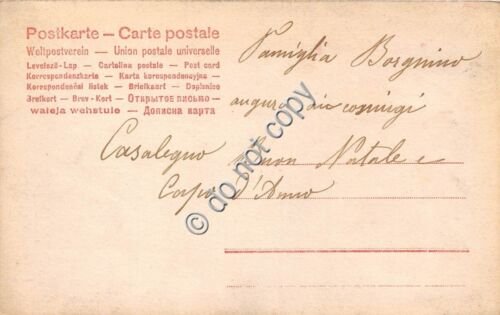 Postkarte — Carte postale
Weltpostverein — Union postale universelle
Levelező-Lap — Cartolina postale — Post card
Korrespondenzkarte — Karta korespondencyjna —
Korespondenční lístek — Briefkaart — Dopisnice
Brefkort — Brev-Kort — ОТКРЫТОЕ ПИСЬМО —
— Дописна карта
Famiglia Borgnino
augura ai coniugi
Casalegno Buon Natale e
Capo d'Anno
© do not copy